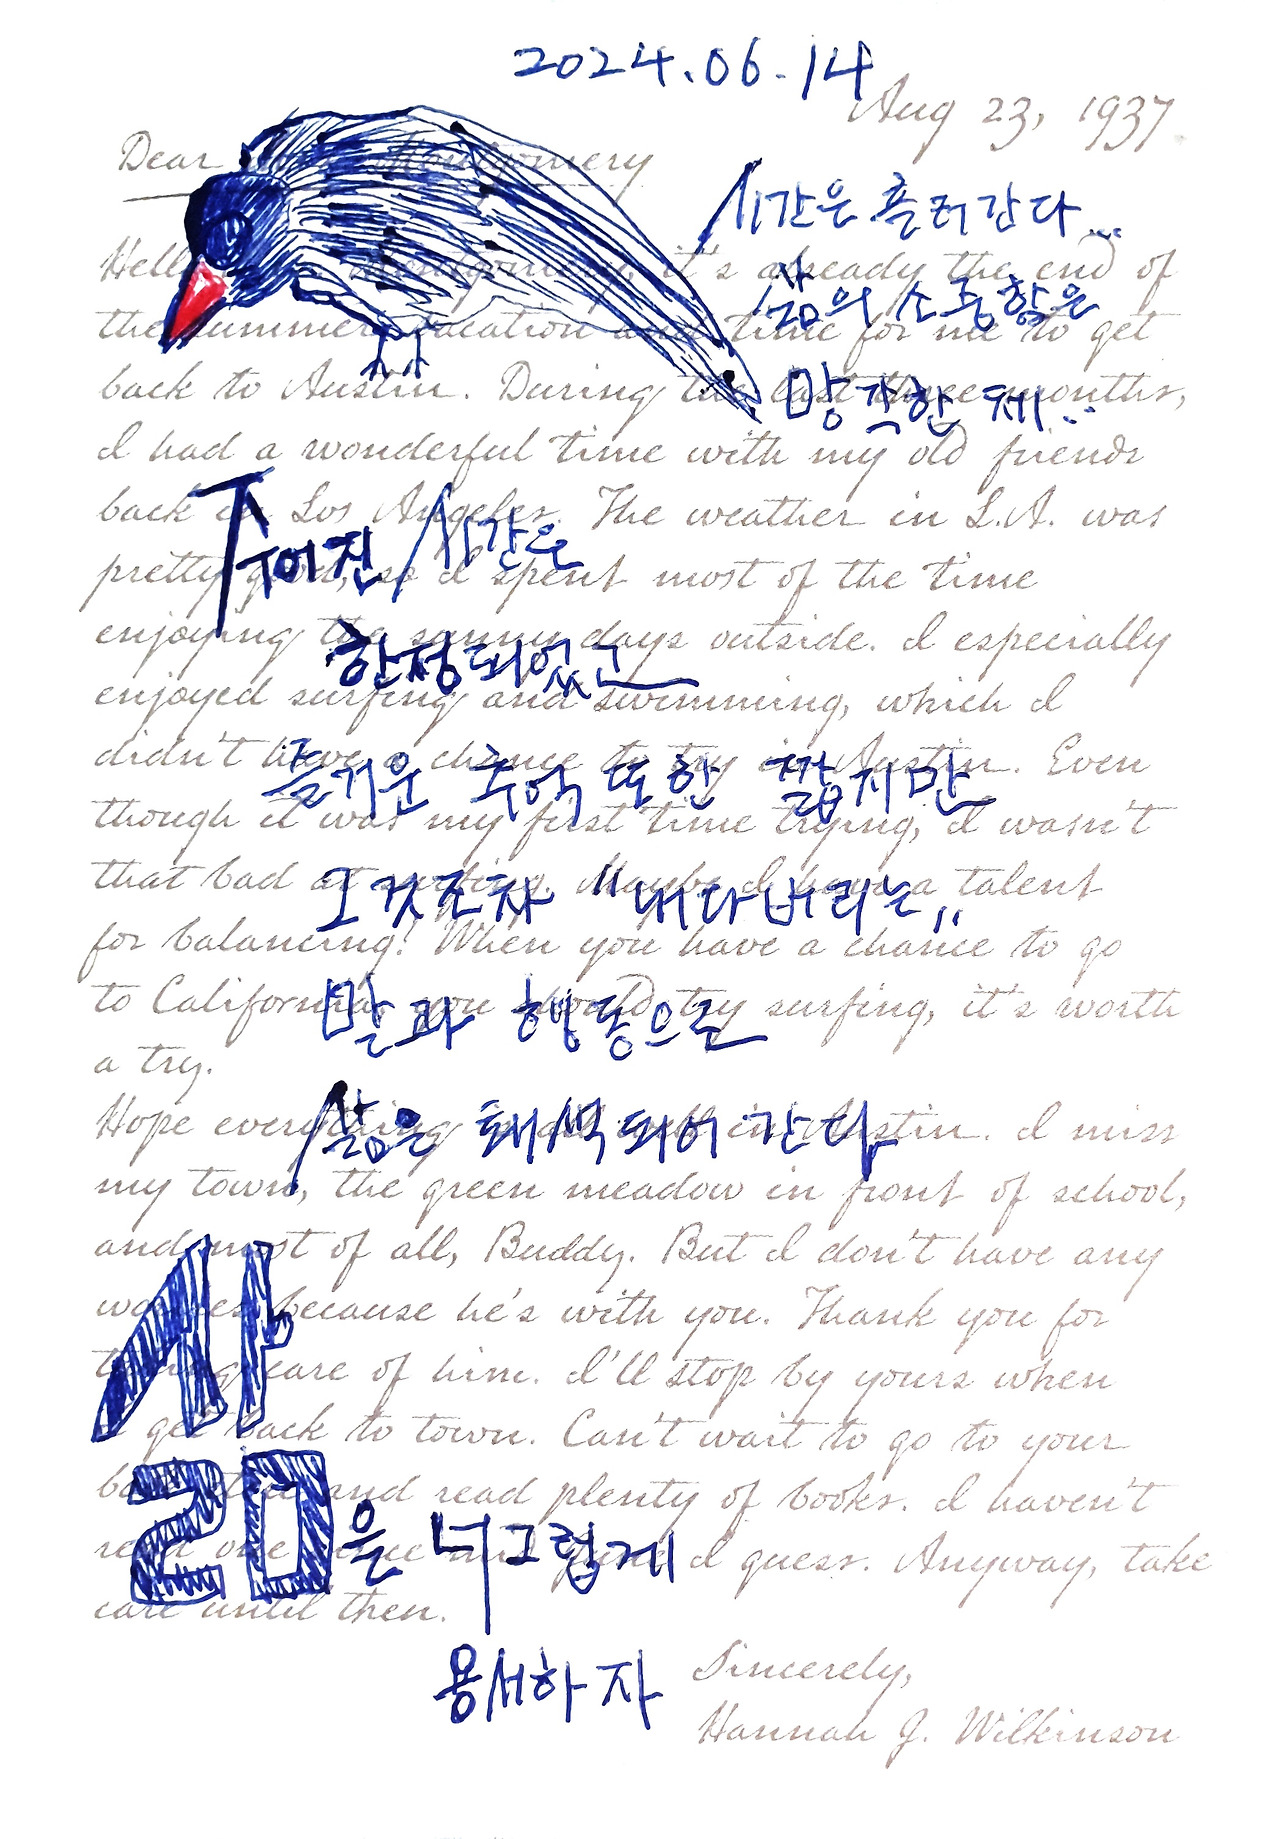 2024.06.14
Aug 23, 1937
Dear Montgomery
시간은 흘러간다...
Montgomery, it's already the end of
삶의 소중함을
the summer vacation and time for me to get
망각한 채...
back to Austin. During the last three months,
I had a wonderful time with my old friends
back in Los Angeles. The weather in L.A. was
주어진 시간은
pretty good, so I spent most of the time
enjoying the sunny days outside. I especially
한정되었고
enjoyed surfing and swimming, which I
didn't have a chance to try in Austin. Even
즐거운 추억 또한 짧지만
though it was my first time trying, I wasn't
that bad at surfing. Maybe I have a talent
그것조차 "내다버리는"
for balancing! When you have a chance to go
to California, you should try surfing, it's worth
말과 행동으로
a try.
Hope everything is all well in Austin. I miss
삶은 퇴색되어 간다
my town, the green meadow in front of school,
and most of all, Buddy. But I don't have any
worries because he's with you. Thank you for
taking care of him. I'll stop by yours when
I get back to town. Can't wait to go to your
and read plenty of books. I haven't
read one since I guess. Anyway, take
care until then.
삶을 너그럽게
용서하자
Sincerely,
Hannah J. Wilkinson